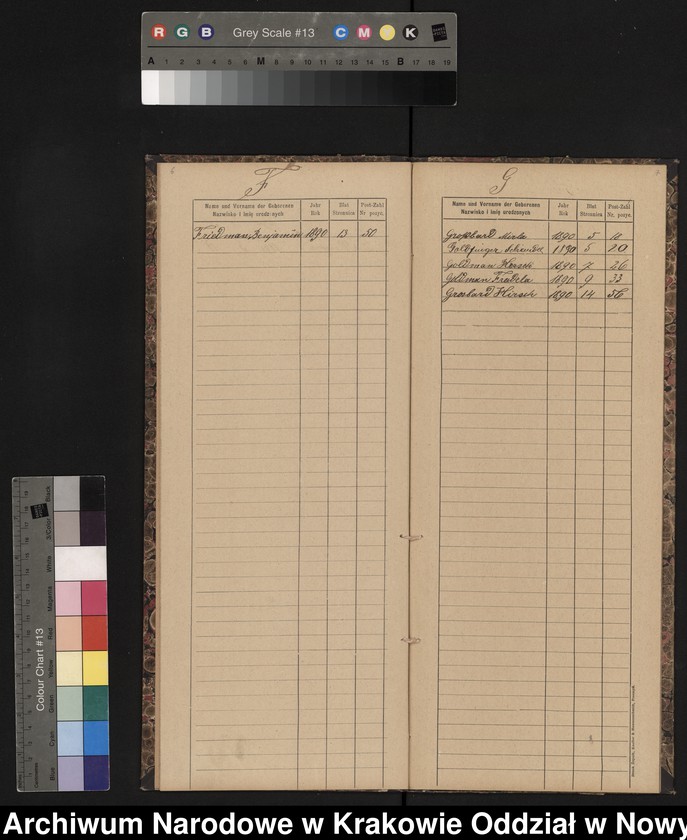 R G B Grey Scale #13 C M Y K
A 1 2 3 4 5 6 M 8 9 10 11 12 13 14 15 B 17 18 19
F
Name und Vorname der Geborenen
Nazwisko i imię urodzonych
Jahr
Rok
Blat
Stronnica
Post-Zahl
Nr. pozyc.
Friedman Benjamin 1890 13 50
G
Name und Vorname der Geborenen
Nazwisko i imię urodzonych
Jahr
Rok
Blat
Stronnica
Post-Zahl
Nr. pozyc.
1890 5
1890 5 20
Goldman Hersch 1890 7 26
Goldman 1890 9 33
Grosbard Hirsch 1890 14 56
Colour Chart #13
Blue Cyan Green Yellow Red Magenta White 3/Color Black
Archiwum Narodowe w Krakowie Oddział w Nowy